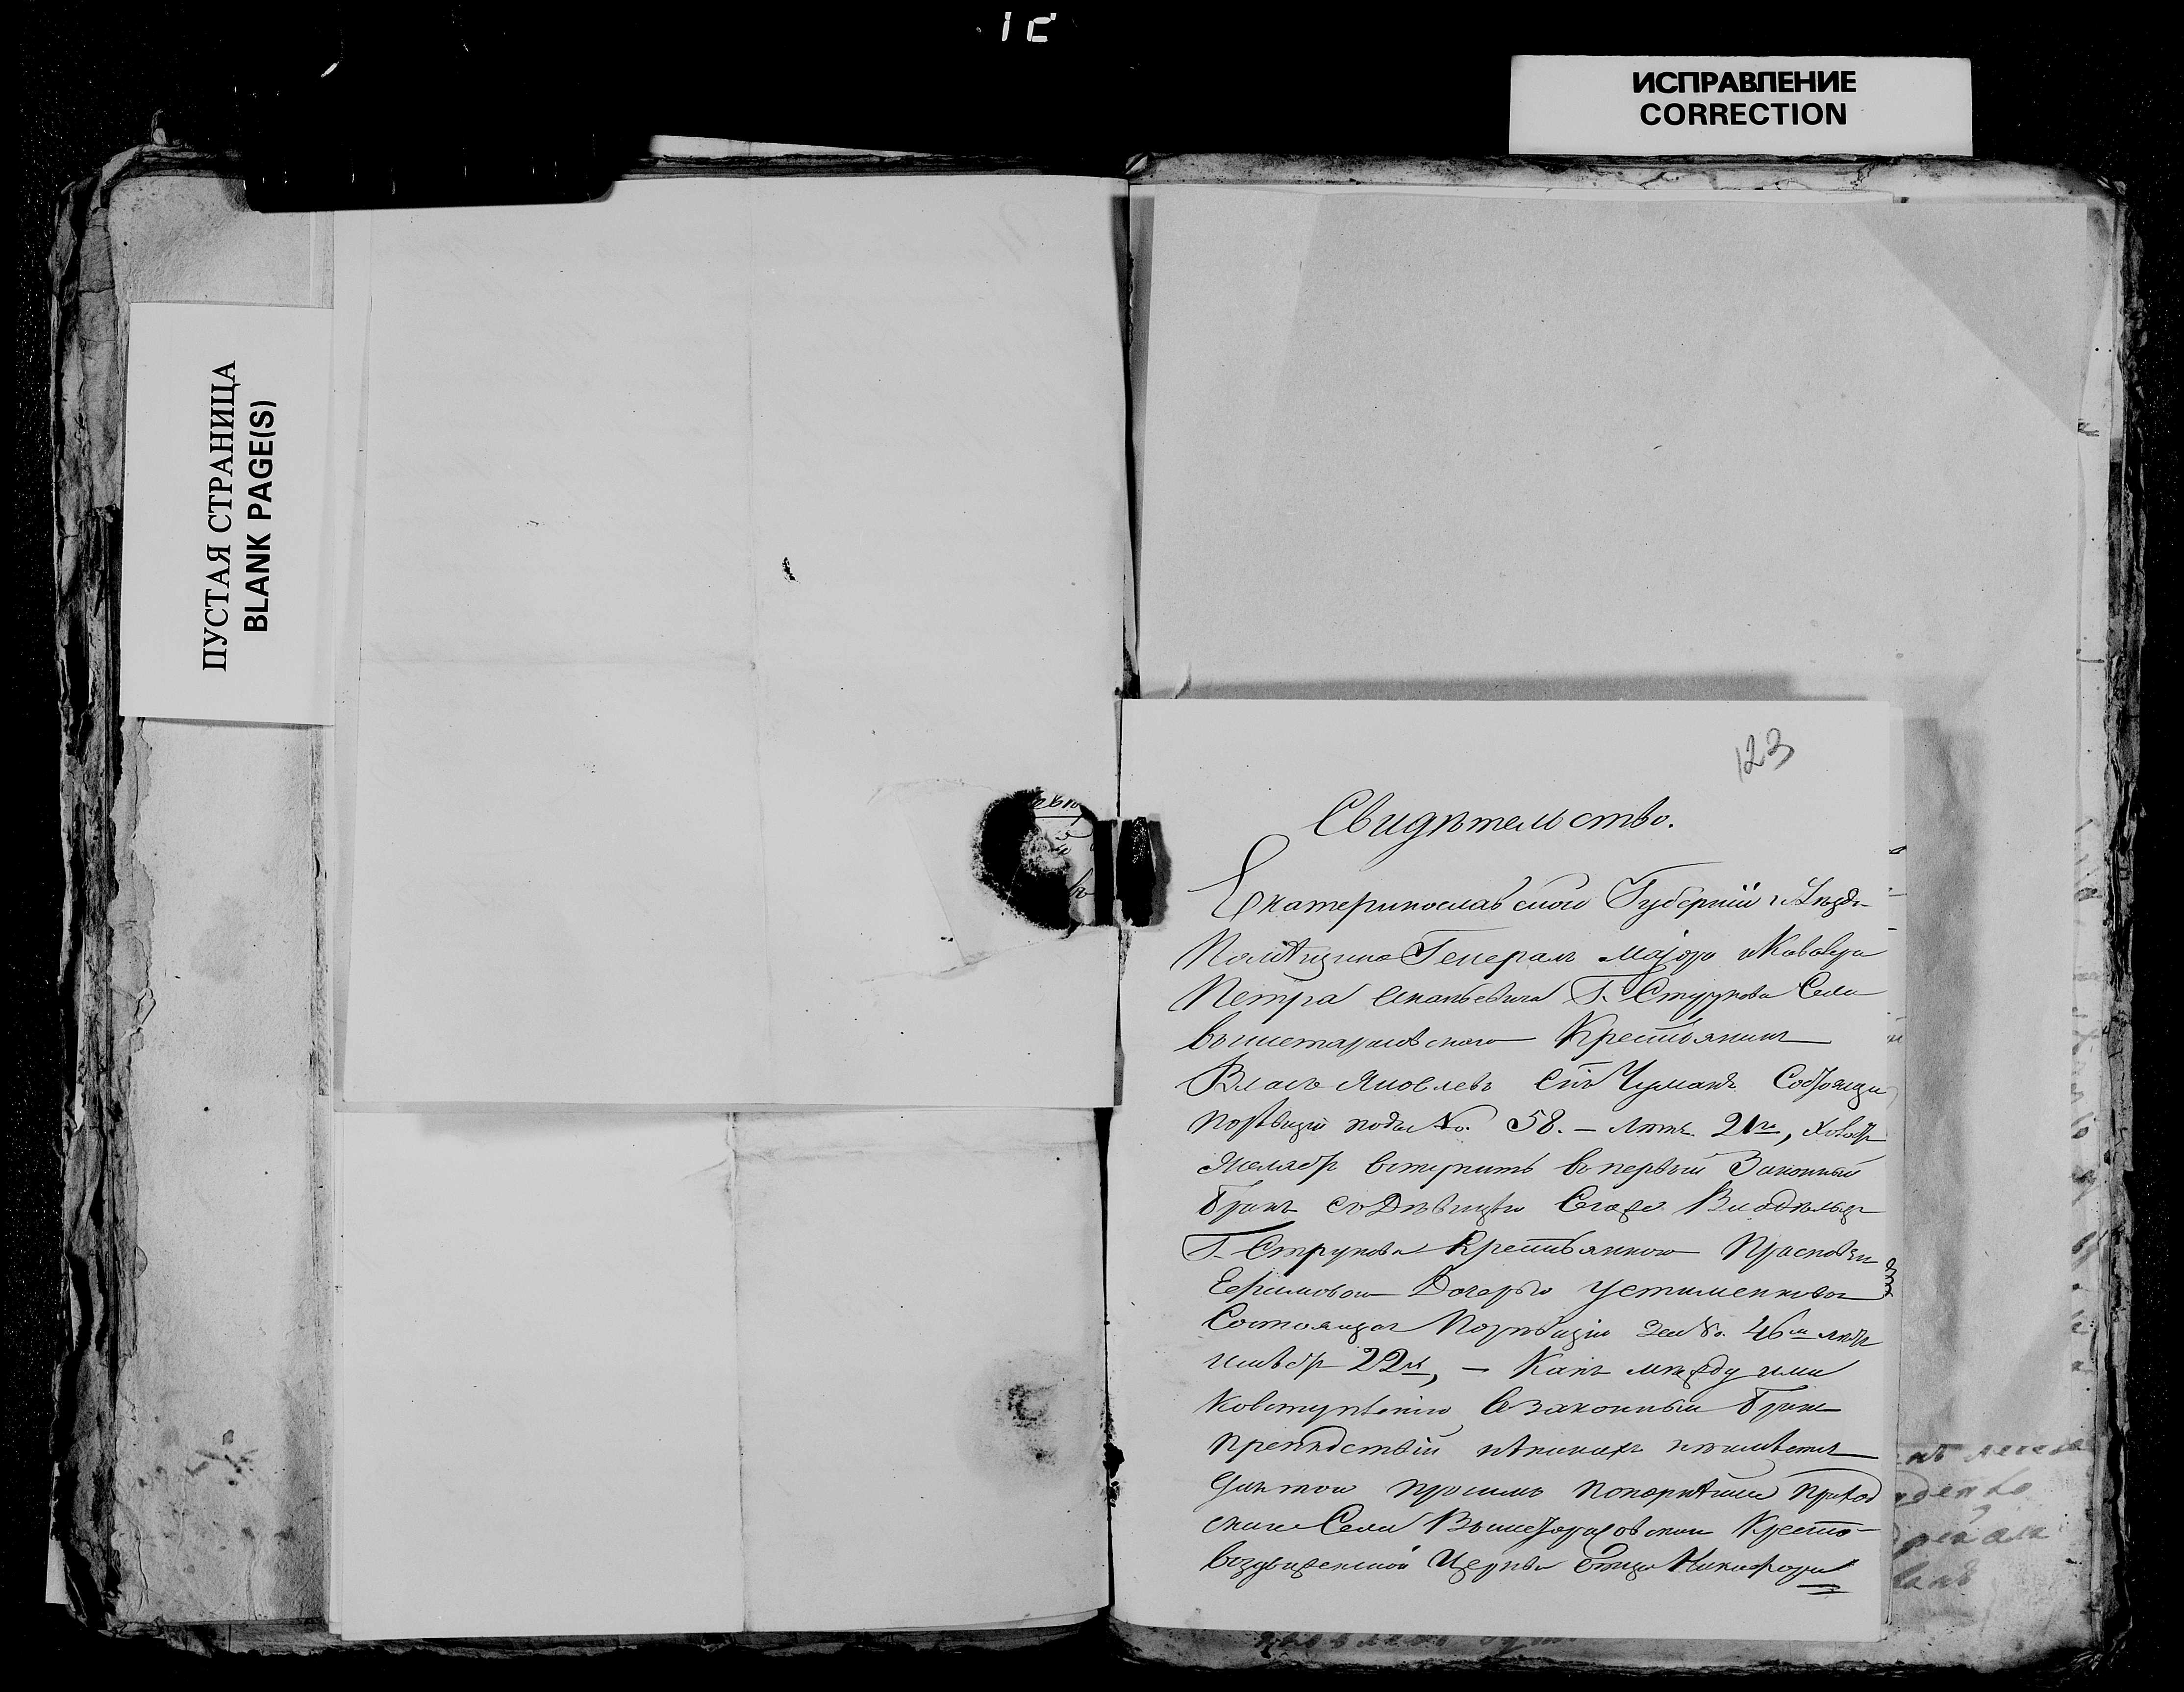 ИСПРАВЛЕНИЕ
CORRECTION
ПУСТАЯ СТРАНИЦА
BLANK PAGE(S)
123
Свидѣтельство.
Екатеринославской Губерніи и Уезда
Помѣщика Генералъ Маіора и Кавалера
Петра Ананьевича Г. Струкова Села
вышетарасовского Крестьянинъ
Власъ Яковлевъ Сынъ Чумакъ Состоящій
поревизіи подъ No. 58. — лѣтъ 21го,
Желаетъ вступить въ первый Законный
бракъ съ Дѣвицею Сегоже Владѣльца
Г. Струкова Крестьянкою Прасковьи
Ефимовою Дочерью Устименковою
Состоящая Поревизіи За No. 46м лѣтъ
имѣетъ 22, — Какъ между ими
Ковступленію взаконный бракъ
препядствій никакихъ неимѣется
Симъ покорнѣйше Приход
ского Села Вышетарасовской Кресто-
воздвиженской Церкви Отца Никифора